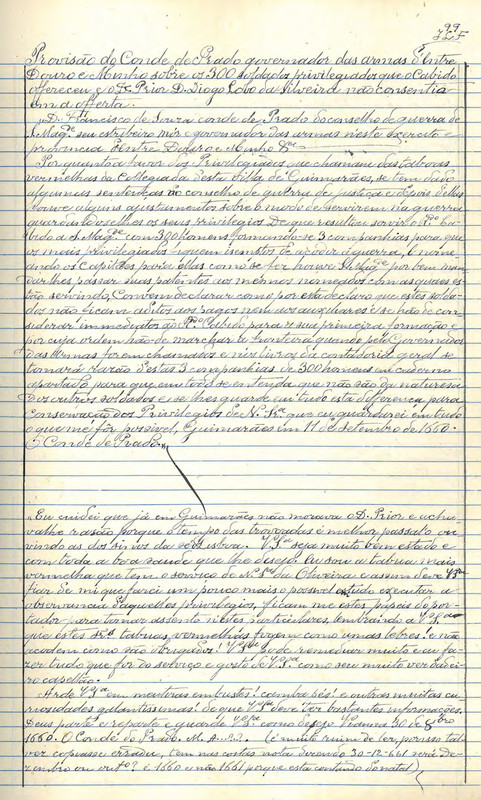 99
Provisão do Conde de Prado governador das armas d'Entre
Douro e Minho sobre os 300 soldados privilegiados que o Cabido
offereceu e o D. Prior D. Diogo Lobo da Silveira não consentia
em a offerta.
D. Francisco de Souza conde de Prado do conselho de guerra de
S. Magde seu estribeiro mór e governador das armas neste exercito e
provincia Entre Douro e Minho &a
Por quanto a favor dos Privilegiados que chamam das taboas
vermelhas da Collegiada desta Villa de Guimarães, se tem dado
algumas sentenças do conselho de guerra de justiça e depois d'ellas
houve alguns ajustamentos sobre o modo de servirem na guerra
guardando-se-lhes os seus privilegios De que resultou servir o Rdo Ca-
bido a S. Magde com 300 homens formando-se 3 companhias para que
os mais privilegiados fiquem isemptos de acodir á guerra, e nome-
ando os Capitães para ellas como se fez houve S. Magde por bem man-
dar lhes passar suas patentes aos mesmos nomeados com as quaes es-
tão servindo, Convem declarar como por esta declaro que estes solda-
dos não ficam aditos aos pagos nem aos auxiliares e se hão de con-
siderar immediatos ao Rdo Cabido para a sua primeira formação e
por cuja ordem hão de marchar á fronteira quando pelo Governador
das Armas forem chamados e nos livros da contadoria geral se
tomará razão destas 3 companhias de 300 homens em caderno
apartado para que em todo se entenda que não são da naturesa
dos outros soldados e se lhes guarde em tudo esta differença para
Conservação dos Privilegios de N. Sra que eu guardarei em tudo
o que me fôr possivel, Guimarães em 11 de setembro de 1660.
O Conde de Prado.
Eu cuidei que já em Guimarães não morava o D. Prior e achu-
va-lhe rasão porque o tempo das trovoadas é melhor passal-o ou-
vindo as dos sinos da sé de Lisboa. V. Sa seja muito bem estado e
com toda a boa saude que lhe desejo. Eu sou a taboa mais
vermelha que tem o serviço de N. Sra da Oliveira e assim deve V. Sa
fiar de mi que farei um pouco mais o possivel em tudo executar a
observancia d'aquelles privilegios, ficam me estes papeis do por-
tador para tomar assento n'estes particulares, lembrando a V. Sa
que estes Srs taboas vermelhas fogem como umas lebres e não
acodem como são obrigados! V. Sa o ha de remediar muito e eu fa-
zer tudo que for do serviço e gosto de V. Sa como seu muito verdadei-
ro capellão.
Arde V. Sa em mentiras embustes! caimbra pés! e outras muitas cu-
riosidades galantissimas! de que V. Sa deve ter bastantes informações.
Deus parte e reparte e guarde V. Sa como desejo Vianna 30 de 8bro
1660. O Conde de Prado. (é muito ruim de ler, por isso tal-
vez copiasse errado, tem nas costas nota dizendo 30-12-661 será De-
zembro ou outo? e 1660 e não 1661 porque esta contando do natal)